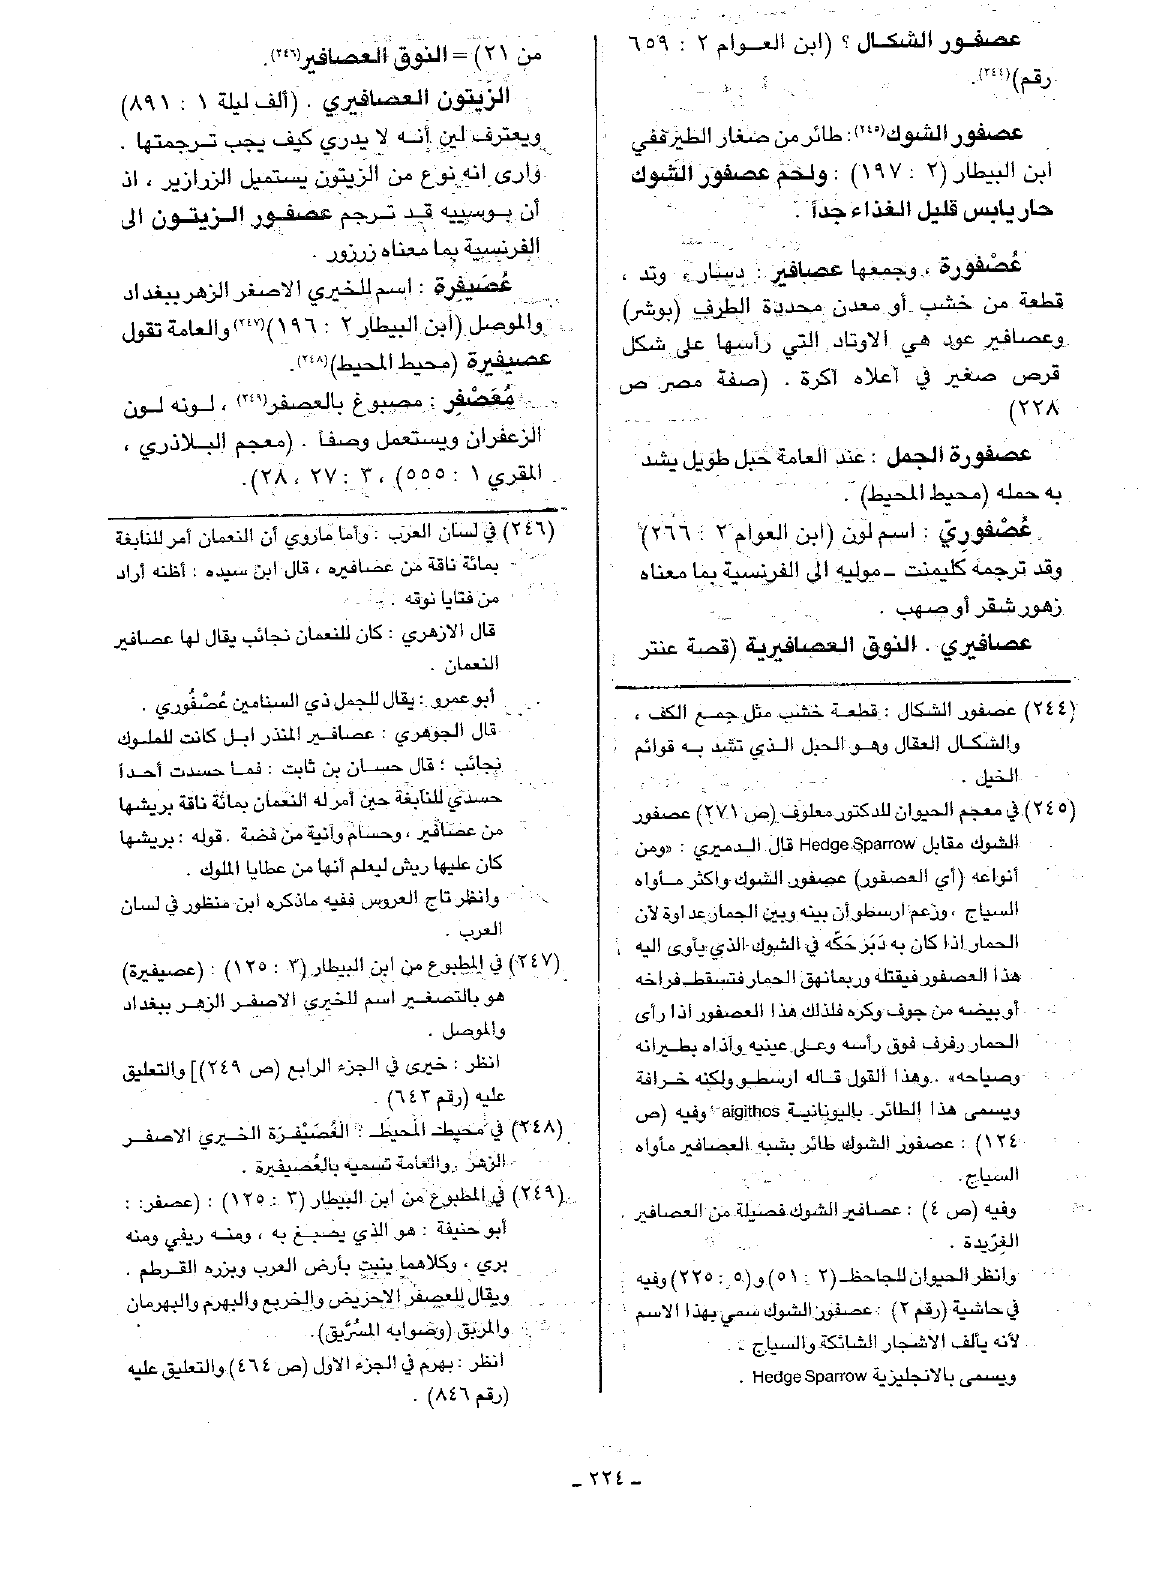 عصفور الشكال ؟ (ابن العوام ٢ : ٦٥٩
رقم)(٢٤٤).
عصفور الشوك(٢٤٥): طائر من صغار الطير ففي
ابن البيطار (٢ : ١٩٧) : ولحم عصفور الشوك
حار يابس قليل الغذاء جداً .
عُصْفورة ، وجمعها عصافير : دسار ، وتد ،
قطعة من خشب أو معدن محددة الطرف (بوشر)
وعصافير عود هي الاوتاد التي رأسها على شكل
قرص صغير في آعلاه آكرة . (صفة مصر ص
٢٢٨)
عصفورة الجمل : عند العامة حبل طويل يشد
به حمله (محيط المحيط) .
عُصْفوريّ : اسم لون (ابن العوام ٢ : ٢٦٦)
وقد ترجمه كليمنت - موليه الى الفرنسية بما معناه
زهور شقر أو صهب .
عصافيري . النوق العصافيرية (قصة عنتر
(٢٤٤) عصفور الشكال : قطعة خشب مثل جمع الكف ،
والشكال العقال وهو الحبل الذي تشد به قوائم
الخيل .
(٢٤٥) في معجم الحيوان للدكتور معلوف (ص ٢٧١) عصفور
الشوك مقابل Hedge Sparrow قال الدميري : «ومن
أنواعه (أي العصفور) عصفور الشوك واكثر مأواه
السياج ، وزعم ارسطو أن بينه وبين الحمار عداوة لأن
الحمار اذا كان به دَبَرَ حَكّه في الشوك الذي يأوى اليه
هذا العصفور فيقتله وربما نهق الحمار فتسقط فراخه
أو بيضه من جوف وكره فلذلك هذا العصفور اذا رأى
الحمار رفرف فوق رأسه وعلى عينيه وآذاه بطيرانه
وصياحه» . وهذا القول قاله ارسطو ولكنه خرافة
ويسمى هذا الطائر باليونانية aigithos وفيه (ص
١٢٤) : عصفور الشوك طائر يشبه العصافير مأواه
السياج.
وفيه (ص ٤) : عصافير الشوك فصيلة من العصافير
الغرّيدة .
وانظر الحيوان للجاحظ (٢ : ٥١) و(٥ : ٢٢٥) وفيه
في حاشية (رقم ٢) : عصفور الشوك سمي بهذا الاسم
لأنه يألف الاشجار الشائكة والسياج .
ويسمى بالانجليزية Hedge Sparrow .
من ٢١) = النوق العصافير(٢٤٦).
الزَيتون العصافيري . (ألف ليلة ١ : ٨٩١)
ويعترف لين أنه لا يدري كيف يجب ترجمتها .
وارى انه نوع من الزيتون يستميل الزرازير ، اذ
أن بوسييه قد ترجم عصفور الزيتون الى
الفرنسية بما معناه زرزور .
عُصَيفِرة : اسم للخيري الاصفر الزهر ببغداد
والموصل (ابن البيطار ٢ : ١٩٦)(٢٤٧) والعامة تقول
عصيفيرة (محيط المحيط)(٢٤٨).
مُعَصْفر : مصبوغ بالعصفر(٢٤٩) ، لونه لون
الزعفران ويستعمل وصفاً . (معجم البلاذري ،
المقري ١ : ٥٥٥) ، ٣ : ٢٧ ، ٢٨).
(٢٤٦) في لسان العرب : وأما ماروي أن النعمان أمر للنابغة
بمائة ناقة من عصافيره ، قال ابن سيده : أظنه أراد
من فتايا نوقه .
قال الازهري : كان للنعمان نجائب يقال لها عصافير
النعمان .
أبو عمرو : يقال للجمل ذي السنامين عُصْفُوري .
قال الجوهري : عصافير المنذر ابل كانت للملوك
نجائب ؛ قال حسان بن ثابت : فما حسدت أحداً
حسدي للنابغة حين أمر له النعمان بمائة ناقة بريشها
من عصافير ، وحسام وآنية من فضة . قوله : بريشها
كان عليها ريش ليعلم أنها من عطايا الملوك .
وانظر تاج العروس ففيه ماذكره ابن منظور في لسان
العرب .
(٢٤٧) في المطبوع من ابن البيطار (٣ : ١٢٥) : (عصيفيرة)
هو بالتصغير اسم للخيري الاصفر الزهر ببغداد
والموصل .
انظر : خيرى في الجزء الرابع (ص ٢٤٩)] والتعليق
عليه (رقم ٦٤٣) .
(٢٤٨) في محيط المحيط : العُصَيْفرَة الخيري الاصفر
الزهر والعامة تسميه بالعُصيفيرة .
(٢٤٩) في المطبوع من ابن البيطار (٣ : ١٢٥) : (عصفر: :
أبو حنيفة : هو الذي يصبغ به ، ومنه ريفي ومنه
بري ، وكلاهما ينبت بأرض العرب وبزره القرطم .
ويقال للعصفر الاحريض والخريع والبهرم والبهرمان
والمريق (وصوابه المُرَّيق).
انظر : بهرم في الجزء الاول (ص ٤٦٤) والتعليق عليه
(رقم ٨٤٦) .
ـ ٢٢٤ ـ